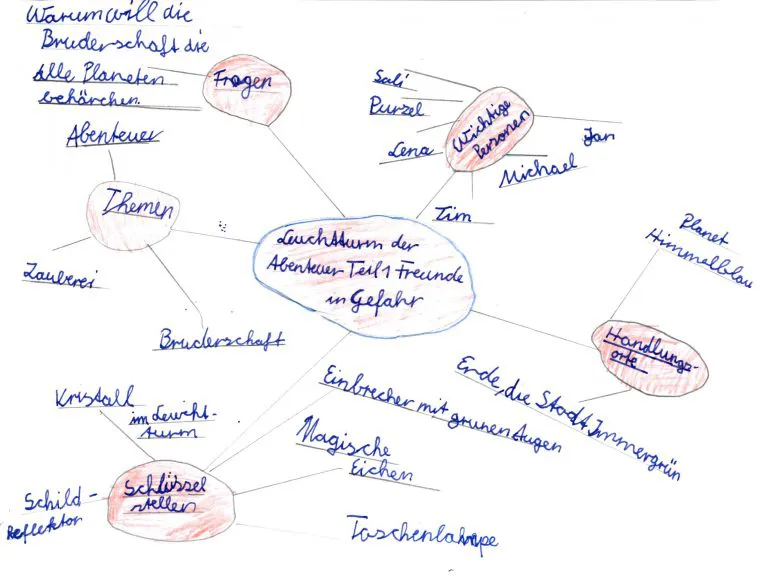 Warum will die
Bruderschaft die
Alle Planeten
behärchen
Fragen
Abenteuer
Themen
Zauberei
Bruderschaft
Sali
Purzel
Lena
Wichtige
Personen
Jan
Michael
Tim
Leuchtturm der
Abenteuer Teil 1 Freunde
in Gefahr
Planet
Himmelblau
Handlungs-
orte
Erde, die Stadt Immergrün
Einbrecher mit grünen Augen
Kristall
im Leucht-
turm
Magische
Eichen
Schlüssel
stellen
Schild-
Reflektor
Taschenlahmpe